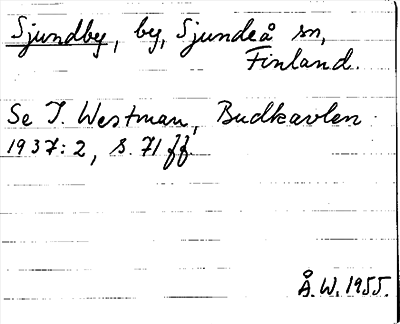 Sjundby, by, Sjundeå sn,
Finland.
Se I. Westman, Budkavlen
1937:2, s. 71 ff
Å.W. 1955.